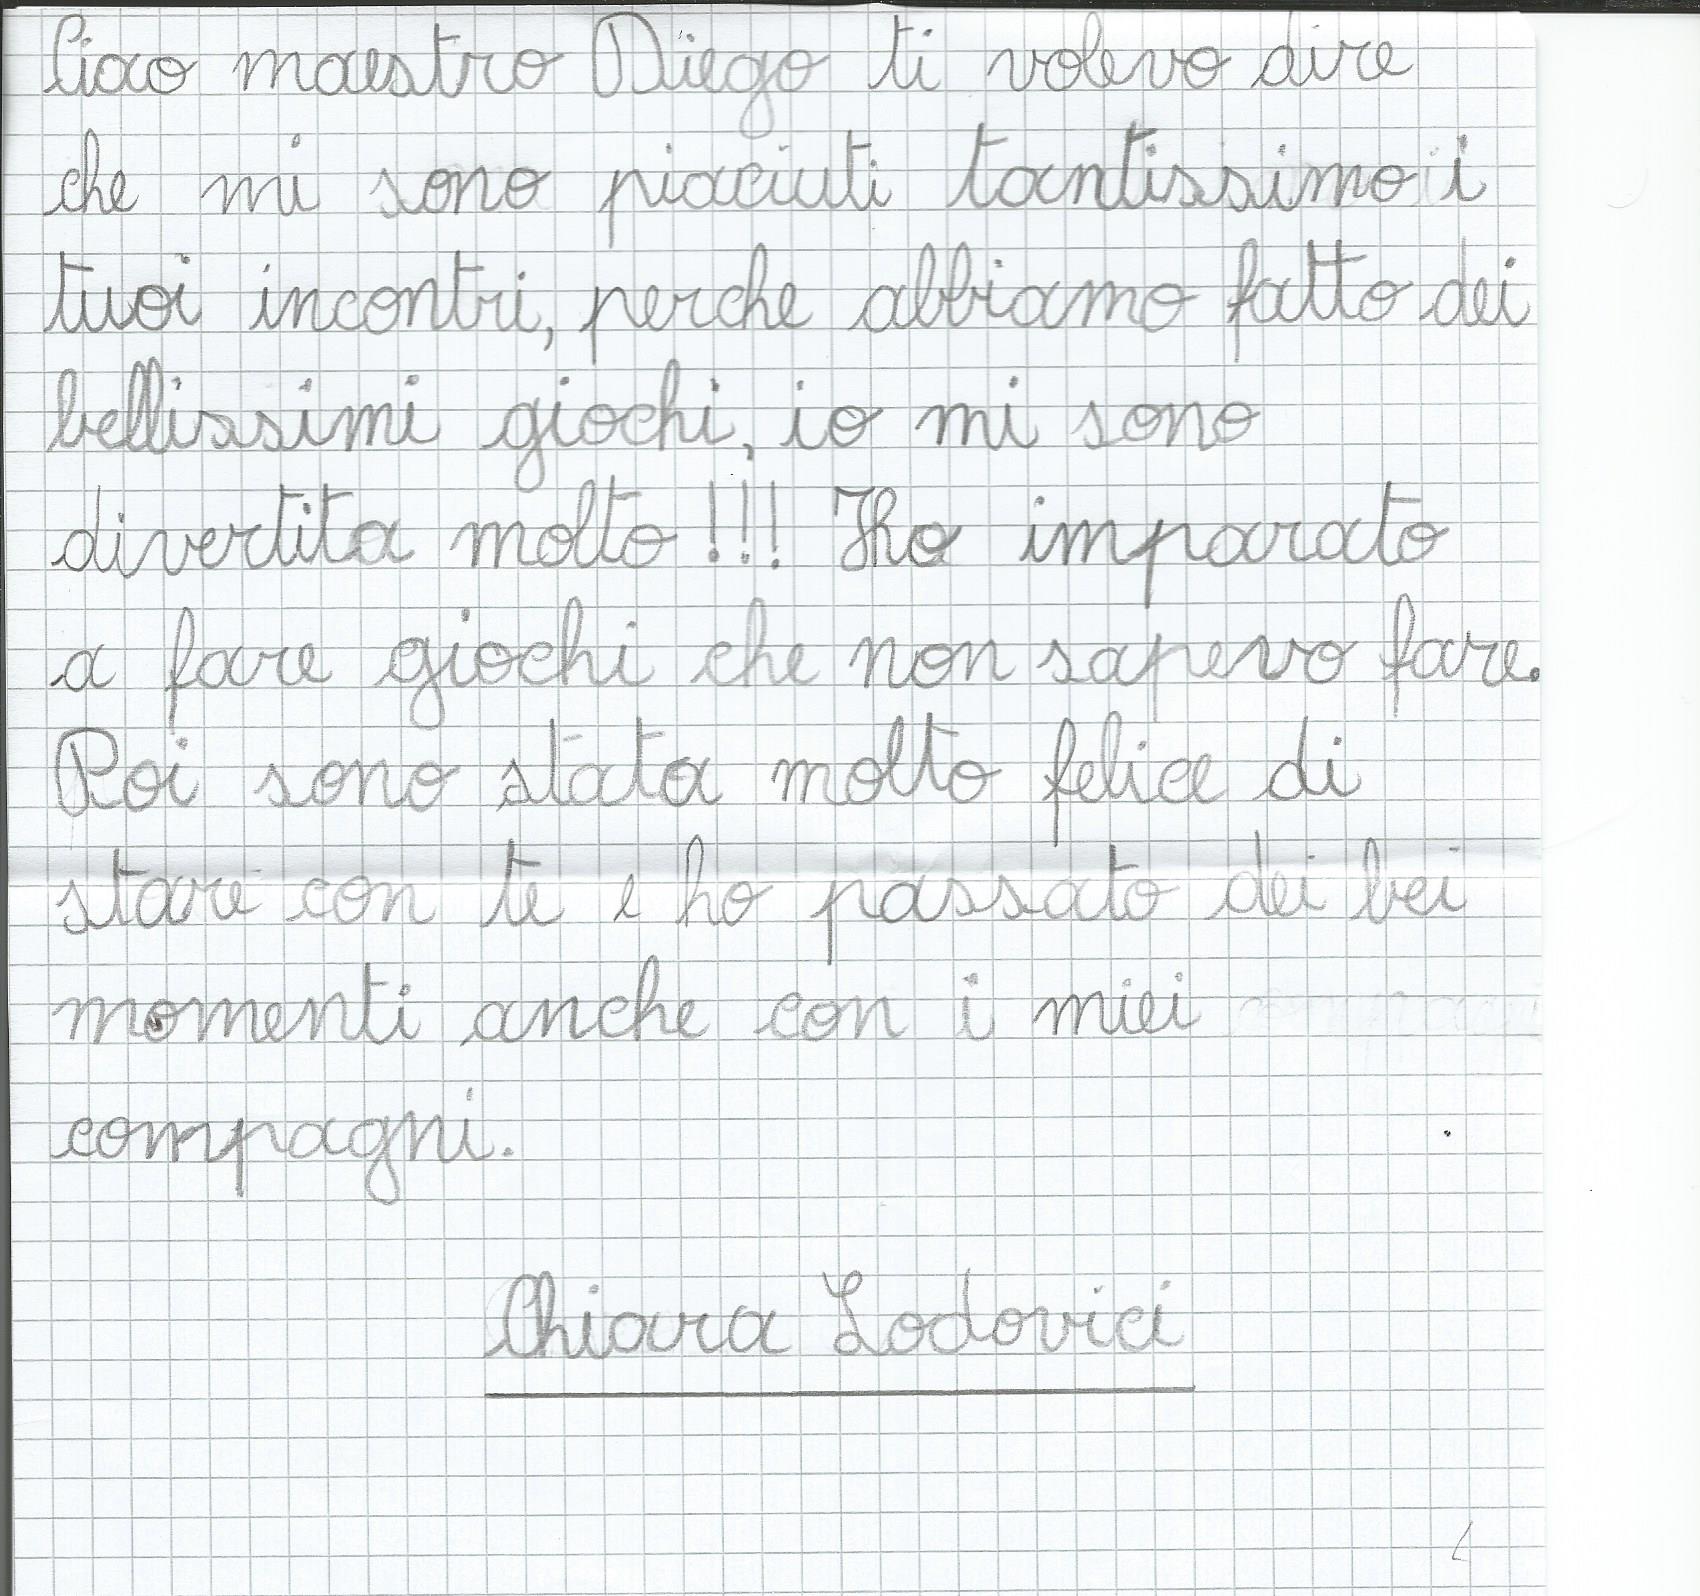 Ciao maestro Diego ti volevo dire
che mi sono piaciuti tantissimo i
tuoi incontri, perche abbiamo fatto dei
bellissimi giochi, io mi sono
divertita molto!!! Ho imparato
a fare giochi che non sapevo fare.
Poi sono stata molto felice di
stare con te e ho passato dei bei
momenti anche con i miei
compagni.
Chiara Lodovici